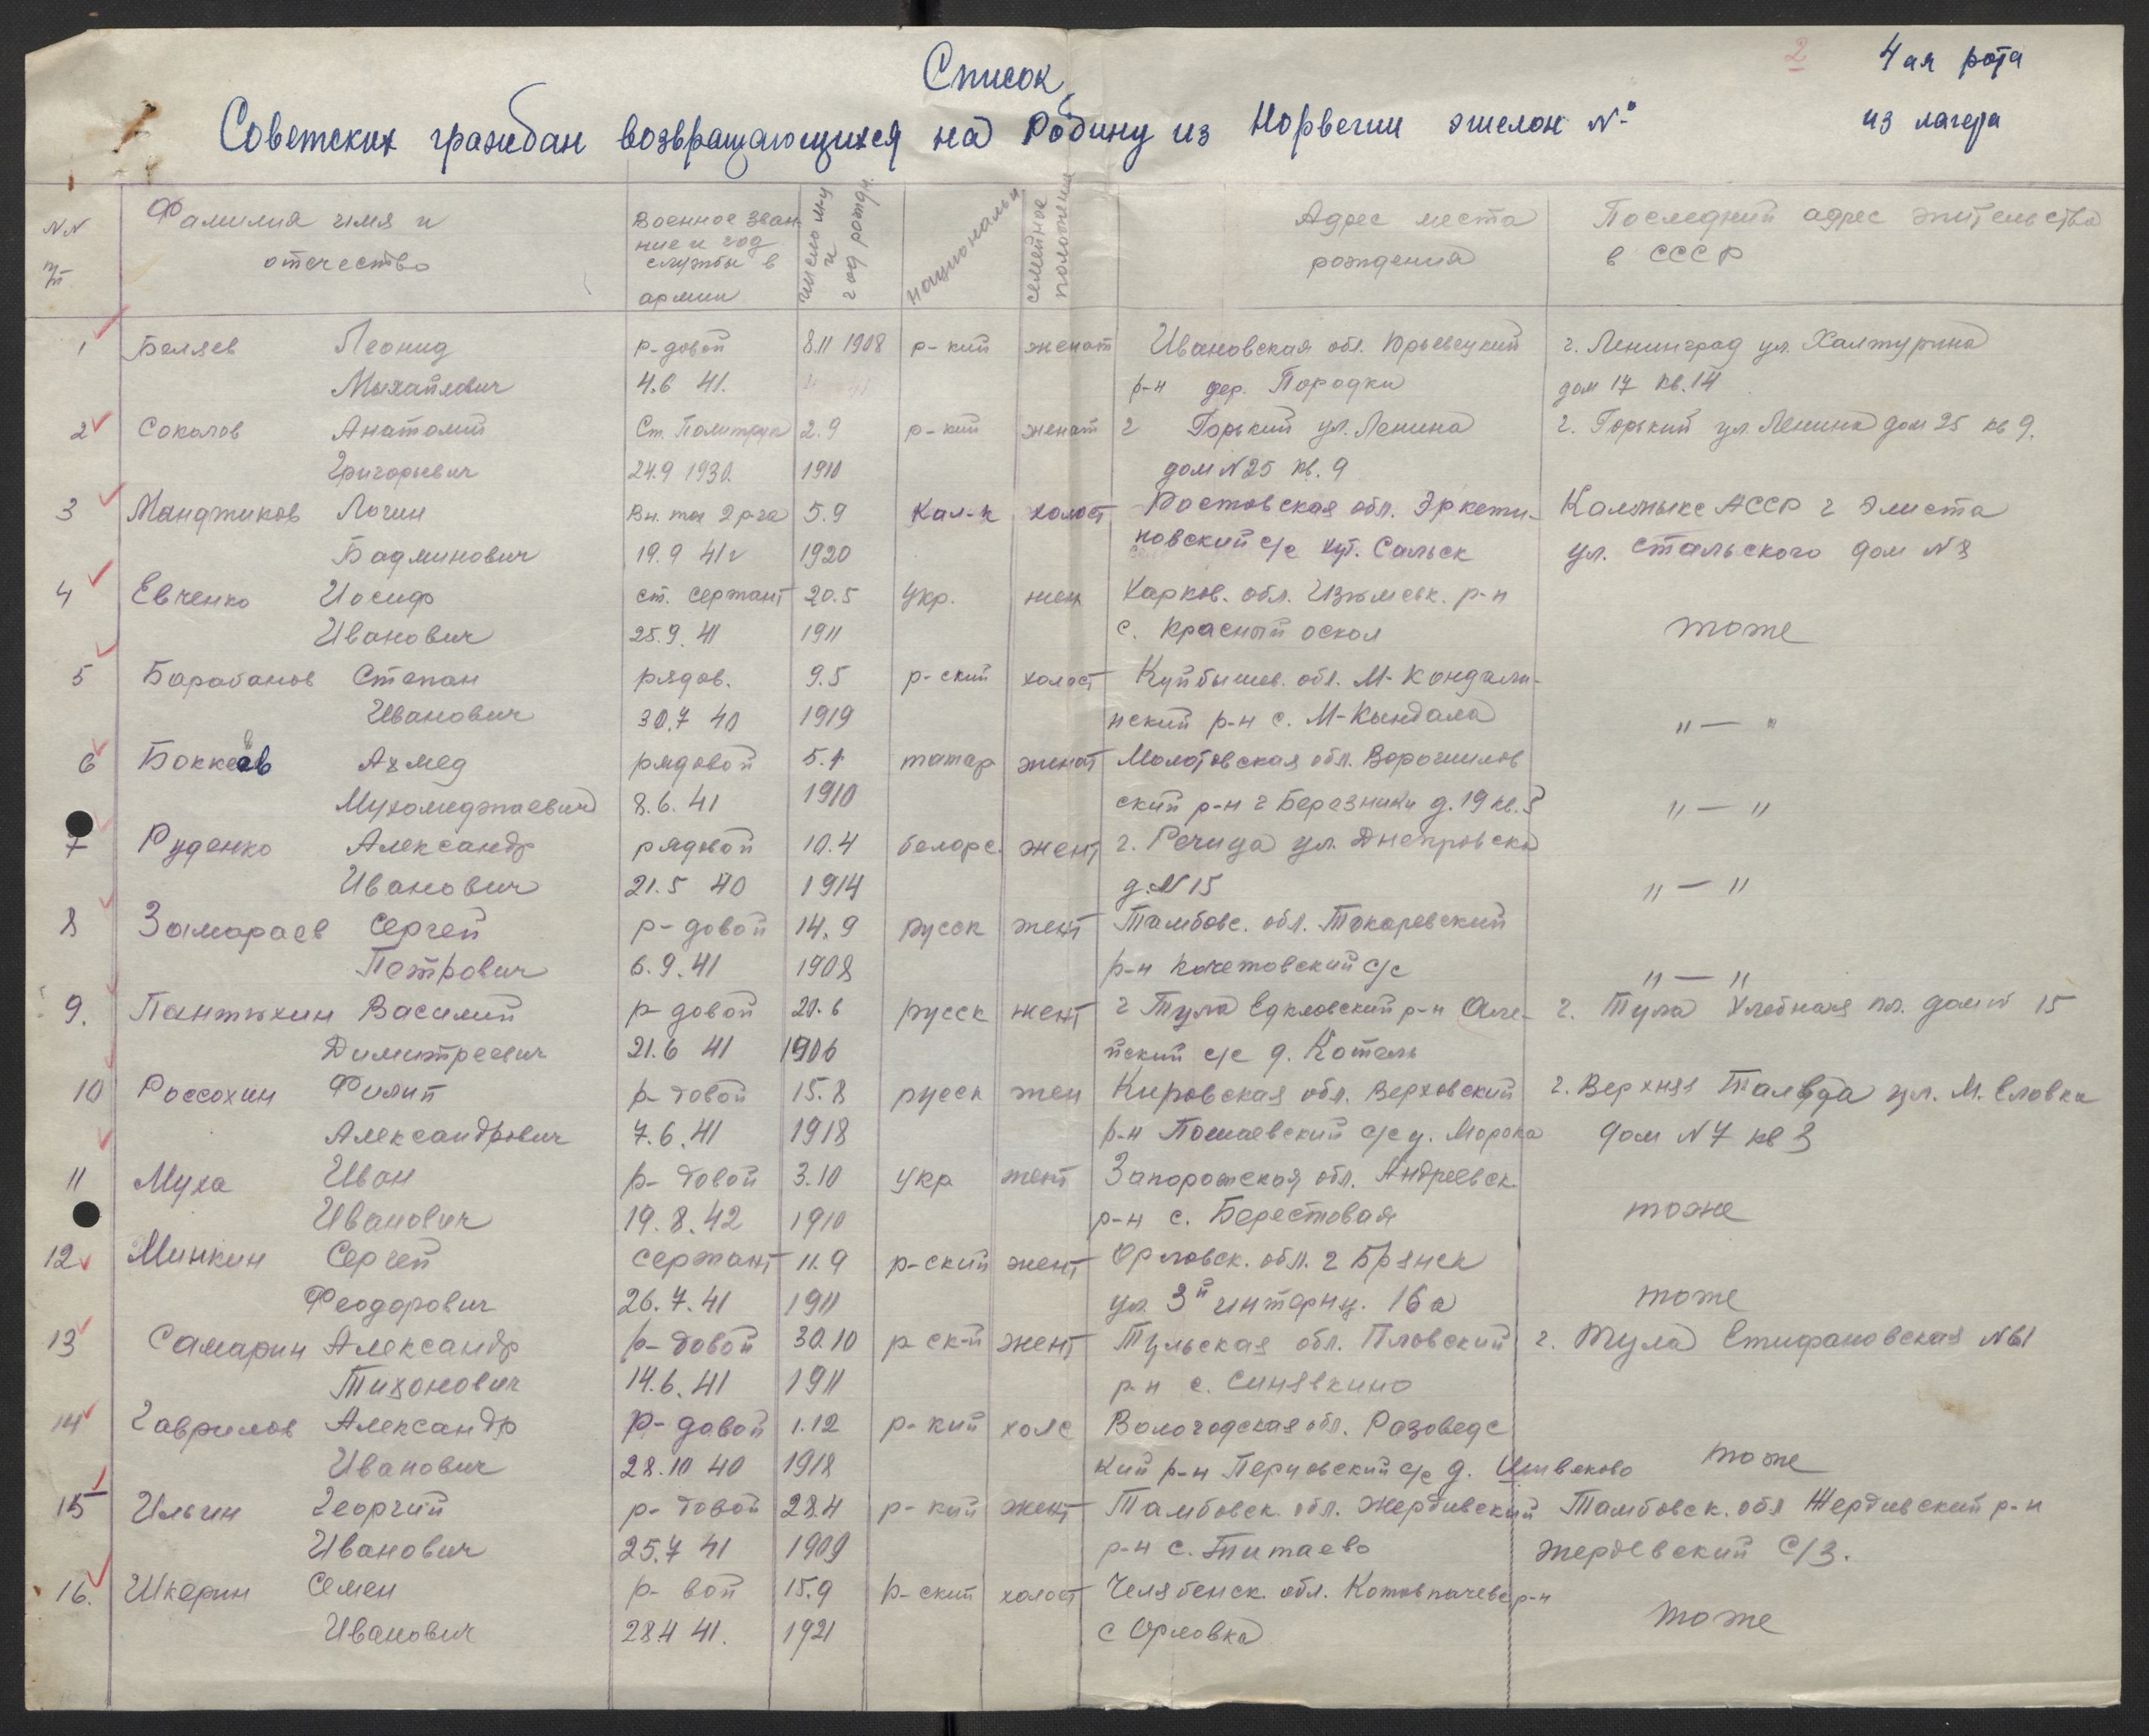 2
4ая рота
Список
Советских граждан возвращающихся на Родину из Норвегии эшелон №
из лагеря
NN п/п
Фамилия имя и отчество
Военное звание и год службы в армии
число м-ц и год рожд.
национальн
семейное положения
Адрес места рождения
Последний адрес жительства в СССР
1 Беляев Леонид р-довой 8.11 1908 р-кий женат Ивановская обл. Юрьевецкий г. Ленинград ул. Халтурина
Михайлович 4.6 41. р-н дер. Породки дом 17 кв. 14
2 Соколов Анатолий Ст. Политрук 2.9 р-кий женат г Горький ул. Ленина г. Горький ул. Ленина дом 25 кв 9.
Григорьевич 24.9 1930. 1910 дом N 25 кв. 9
3 Манджиков Логин Вн. тех 2 р-га 5.9 Кал-к холост Ростовская обл. Эркети- Калмыкс АССР г Элиста
Бадминович 19.9 41г 1920 новский с/с хут. Сальск ул. Стальского дом N 8
4 Евченко Иосиф ст. сержант 20.5 Укр. жен Харков. обл. Изюмевк. р-н
Иванович 25.9.41 1911 с. Красный оскол тоже
5 Барабанов Степан рядов. 9.5 р-ский холост Куйбышев. обл. М-Кондали-
Иванович 30.7 40 1919 нский р-н с. М-Кындала " — "
6 Боккеев Ахмед рядовой 5.1 татар женат Молотовская обл. Ворошилов
Мухомеджаевич 8.6.41 1910 ский р-н г Березники д. 19 кв. 5 " — "
7 Руденко Александр рядовой 10.4 белорс. жент г. Речица ул. Днепровска
Иванович 21.5 40 1914 д. N 15 " — "
8 Замараев Сергей р-довой 14.9 русск жент Тамбовс. обл. Токаревский
Петрович 6.9.41 1908 р-н Кочетовский с/с " — "
9. Пантюхин Василий р-довой 20.6 русск жент г Тула р-н г. Тула Хлебная пл. дом N 15
Димитреевич 21.6 41 1906 йский с/с д. Котель
10 Россохин Филип р-довой 15.8 русск жен Кировская обл. Верховский г. Верхняя Талвда ул. М. Еловка
Александрович 7.6.41 1918 р-н Пошаевский с/с у. Морока дом N 7 кв 3
11 Муха Иван р-довой 3.10 укр жент Запорожская обл. Андреевск
Иванович 19.8.42 1910 р-н с. Берестовая тоже
12 Минкин Сергей сержант 11.9 р-ский жент Орловск. обл. г Брянск
Феодорович 26.7.41 1911 ул. 3й интернц. 16а тоже
13 Самарин Александр р-довой 30.10 р ск-й жент Тульская обл. Пловский г. Тула Епифановская N 61
Тихонович 14.6.41 1911 р-н с. Синявкино
14 Гаврилов Александр р-довой 1.12 р-кий холс Вологодская обл. Разоведс
Иванович 28.10 40 1918 кий р-н Перцовский с/с д. Шивяково тоже
15 Ильин Георгий р-довой 28.4 р-кий жент Тамбовск. обл. Жердивский Тамбовск. обл Жердивский р-н
Иванович 25.7 41 1909 р-н с. Питаево Жердевский С/З.
16. Шкерин Семен р-вой 15.9 р-ский холост Челябенск. обл. р-н
Иванович 28.4 41. 1921 с Орловка тоже